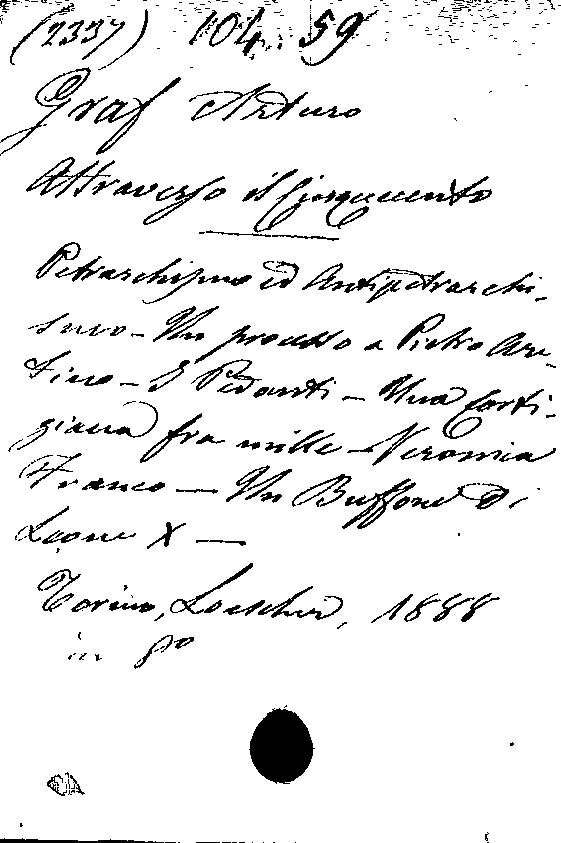 (2337) 104. 59
Graf Arturo
Attraverso il Cinquecento
Petrarchismo ed Antipetrarchi-
smo - Un processo a Pietro Are-
tino - I Pedanti - Una Corti-
giana fra mille - Veronica
Franco - Un Buffone di
Leone X -
Torino, Loescher, 1888
in 8º